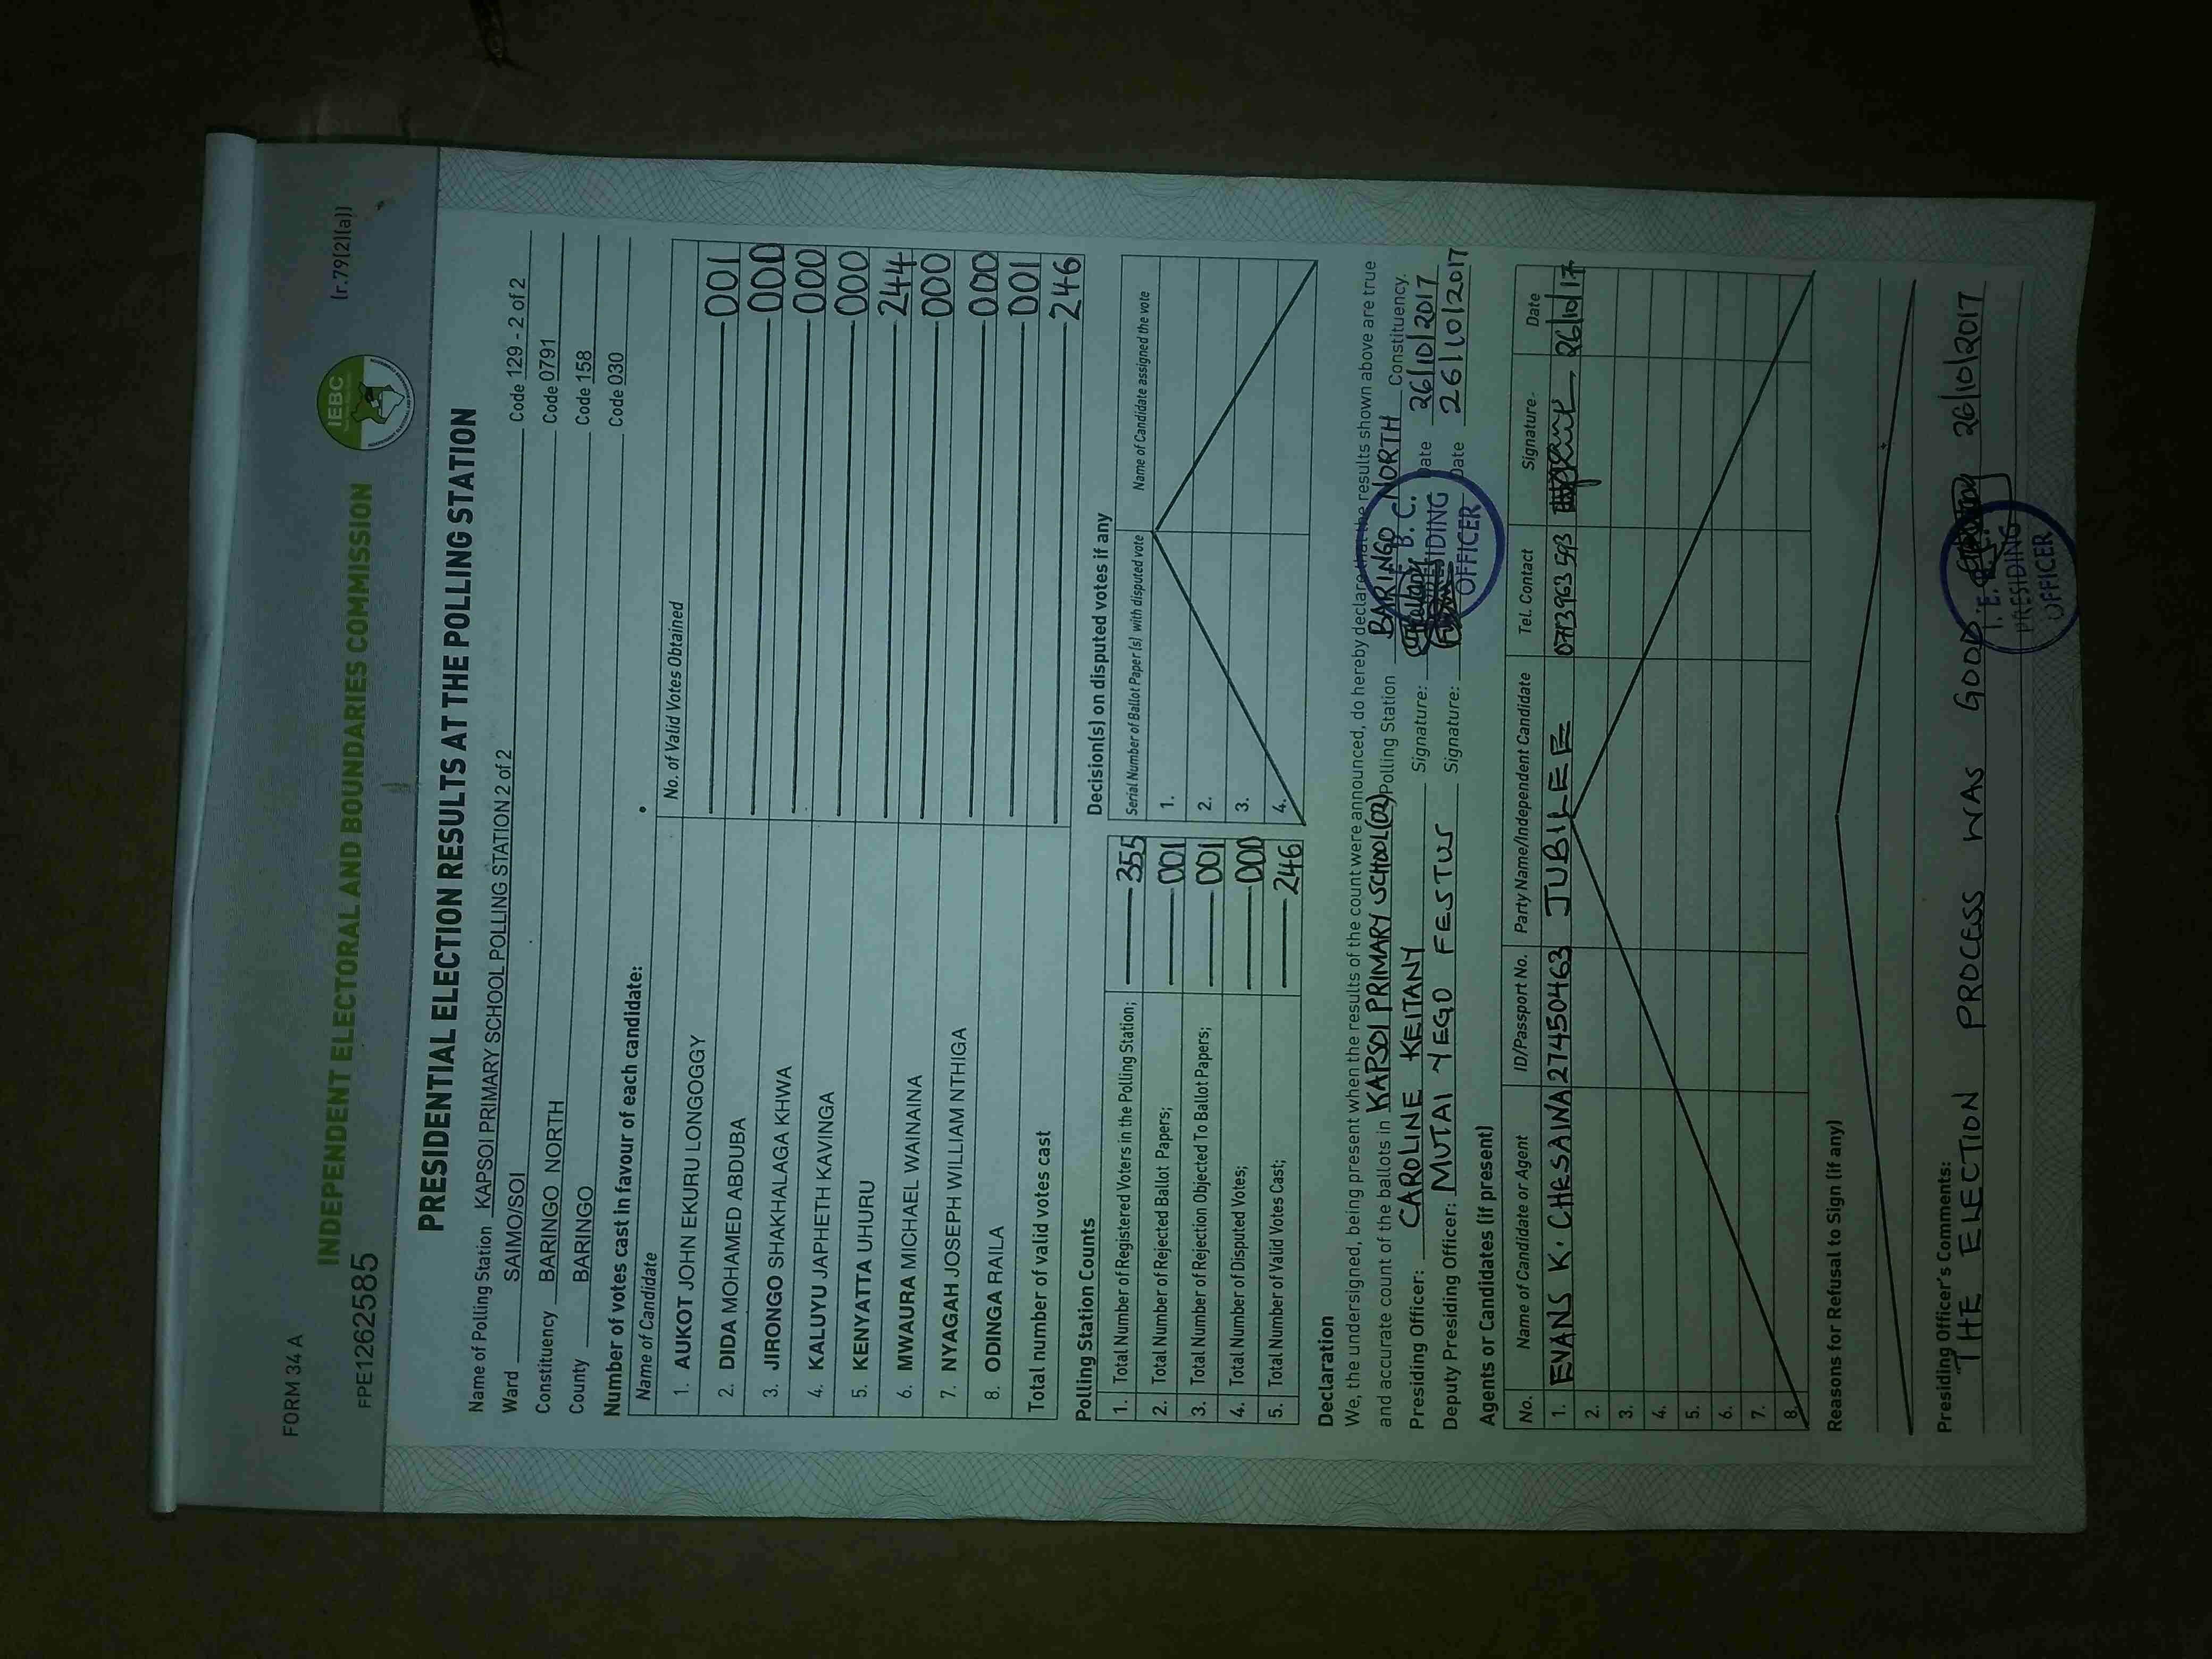 FORM 34 A
(r.79(2)(a))
IEBC
INDEPENDENT ELECTORAL AND BOUNDARIES COMMISSION
FPE1262585
PRESIDENTIAL ELECTION RESULTS AT THE POLLING STATION
Name of Polling Station KAPSOI PRIMARY SCHOOL POLLING STATION 2 of 2 Code 129 - 2 of 2
Ward SAIMO/SOI Code 0791
Constituency BARINGO NORTH Code 158
County BARINGO Code 030
Number of votes cast in favour of each candidate:
Name of Candidate No. of Valid Votes Obtained
1. AUKOT JOHN EKURU LONGOGGY 001
2. DIDA MOHAMED ABDUBA 000
3. JIRONGO SHAKHALAGA KHWA 000
4. KALUYU JAPHETH KAVINGA 000
5. KENYATTA UHURU 244
6. MWAURA MICHAEL WAINAINA 000
7. NYAGAH JOSEPH WILLIAM NTHIGA 000
8. ODINGA RAILA 001
Total number of valid votes cast 246
Polling Station Counts
1. Total Number of Registered Voters in the Polling Station; 355
2. Total Number of Rejected Ballot Papers; 001
3. Total Number of Rejection Objected To Ballot Papers; 001
4. Total Number of Disputed Votes; 000
5. Total Number of Valid Votes Cast; 246
Decision(s) on disputed votes if any
Serial Number of Ballot Paper (s) with disputed vote Name of Candidate assigned the vote
1.
2.
3.
4.
Declaration
We, the undersigned, being present when the results of the count were announced, do hereby declare that the results shown above are true
and accurate count of the ballots in KAPSOI PRIMARY SCHOOL(02) Polling Station BARINGO NORTH Constituency.
Presiding Officer: CAROLINE KEITANY Signature: Date 26/10/2017
Deputy Presiding Officer: MUTAI YEGO FESTUS Signature: Date 26/10/2017
PRESIDING
OFFICER
Agents or Candidates (if present)
No. Name of Candidate or Agent ID/Passport No. Party Name/Independent Candidate Tel. Contact Signature Date
1. EVANS K. CHESAINA 27450463 JUBILEE 0713963593 26/10/17
2.
3.
4.
5.
6.
7.
8.
Reasons for Refusal to Sign (if any)
Presiding Officer's Comments:
THE ELECTION PROCESS WAS GOOD 26/10/2017
PRESIDING
OFFICER